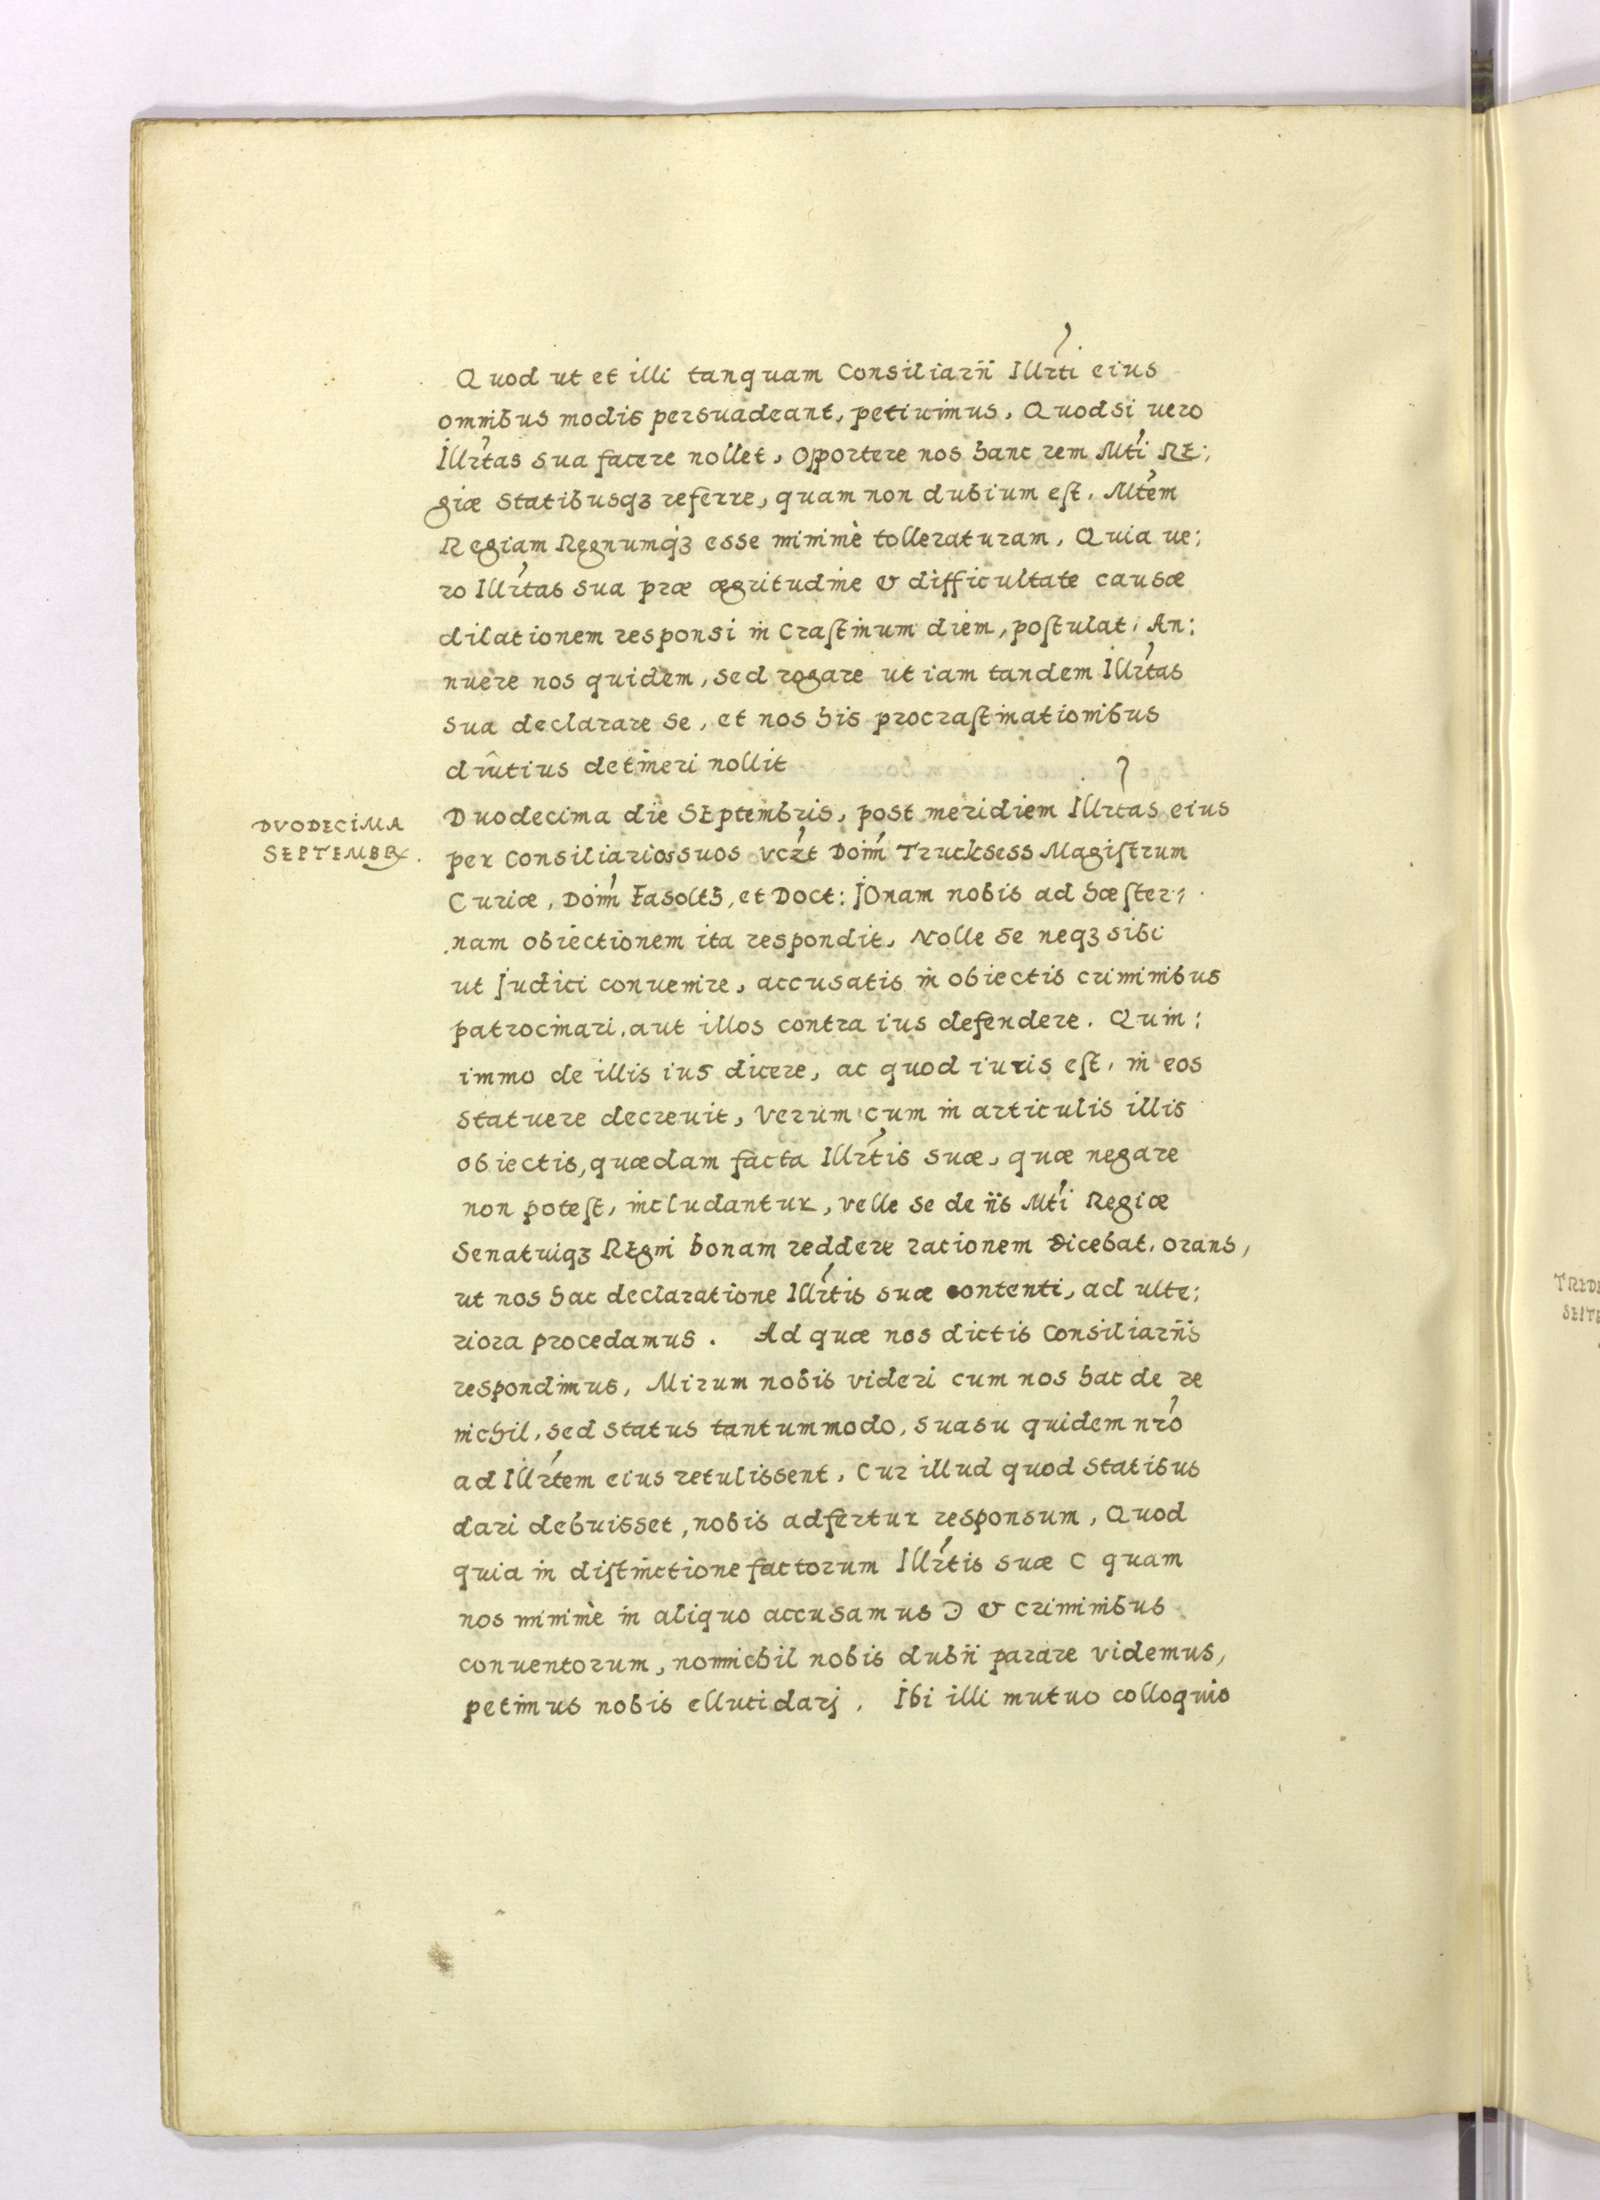 Quod ut et illi tanquam Consiliarii Illrti eius
omnibus modis persuadeant, petiuimus, Quodsi uero
Illrtas sua facere nollet, Opportere nos hanc rem Mti RE:
giæ Statibusqʒ referre, quam non dubium est, Mtem
Regiam Regnumqʒ esse minimè tolleraturam, Quia ue:
ro Illrtas sua præ ægritudine & difficultate causæ
dilationem responsi in Crastinum diem, postulat, An:
nuere nos quidem, sed rogare ut iam tandem Illrtas
sua declarare se, et nos his procrastinationibus
diutius detineri nollit
DVODECIMA
SEPTEMBR
Duodecima die SEptembris, post meridiem Illrtas eius
per Consiliarios suos vcrt Doim Trucksess Magistrum
Curiæ, Doim Fasolth, et Doct: JOnam nobis ad hæster:
nam obiectionem ita respondit, Nolle se neqʒ sibi
ut Judici conuenire, accusatis in obiectis criminibus
patrocinari, aut illos contra ius defendere. Quin:
immo de illis ius dicere, ac quod iuris est, in eos
statuere decreuit, Verum cum in articulis illis
obiectis, quædam facta Illrtis suæ, quæ negare
non potest, includantur, velle se de iis Mti Regiæ
Senatuiqʒ REgni bonam reddere rationem dicebat, orans,
ut nos hac declaratione Illrtis suæ contenti, ad ulte:
riora procedamus. Ad quæ nos dictis Consiliariis
respondimus, Mirum nobis videri cum nos hac de re
nichil, sed status tantummodo, suasu quidem nro
ad Illrtem eius retulissent, Cur illud quod Statibus
dari debuisset, nobis adfertur responsum, Quod
quia in distinctione factorum Illrtis suæ ( quam
nos minimè in aliquo accusamus ) & criminibus
conuentorum, nonnichil nobis dubii parare videmus,
petimus nobis ellucidarj. Ibi illi mutuo colloquio